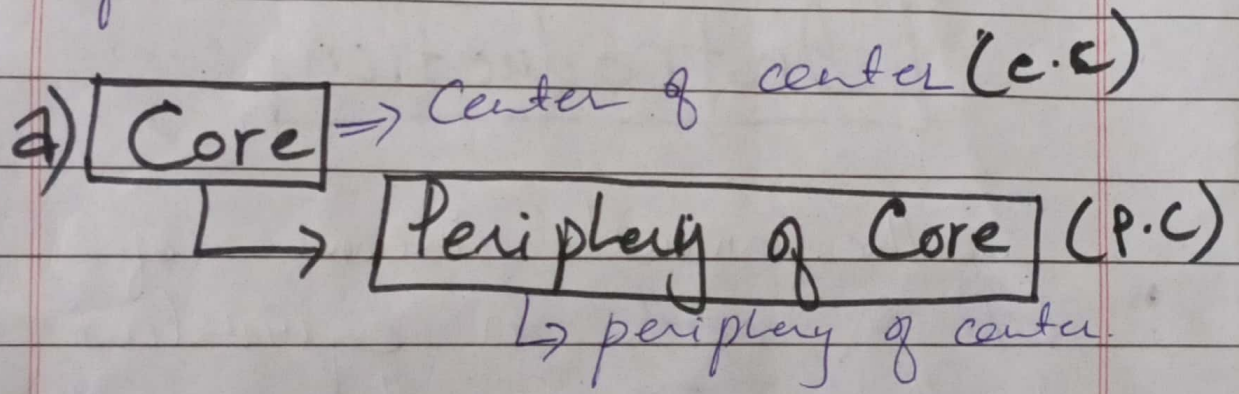 a) Core => Center of center (c.c)
↳ Periphery of Core (P.C)
↳ periphery of center.